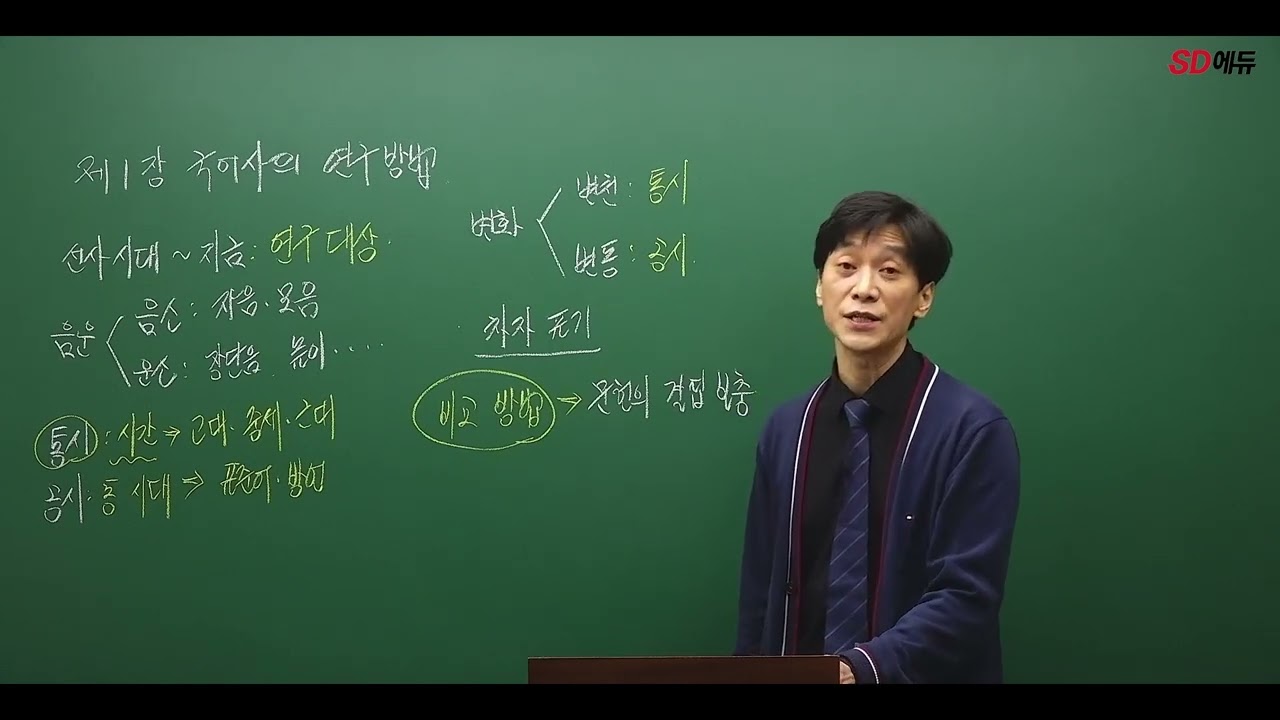 SD에듀
제1장 국어사의 연구방법.
선사시대 ~ 지금: 연구 대상.
음운
음소: 자음·모음
운소: 장단음 ....
통시: 시간 → 고대·중세·근대
공시: 동 시대 → 표준어·방언
변화
변천: 통시
변동: 공시.
차자 표기
비교 방법 → 문헌의 결핍 보충